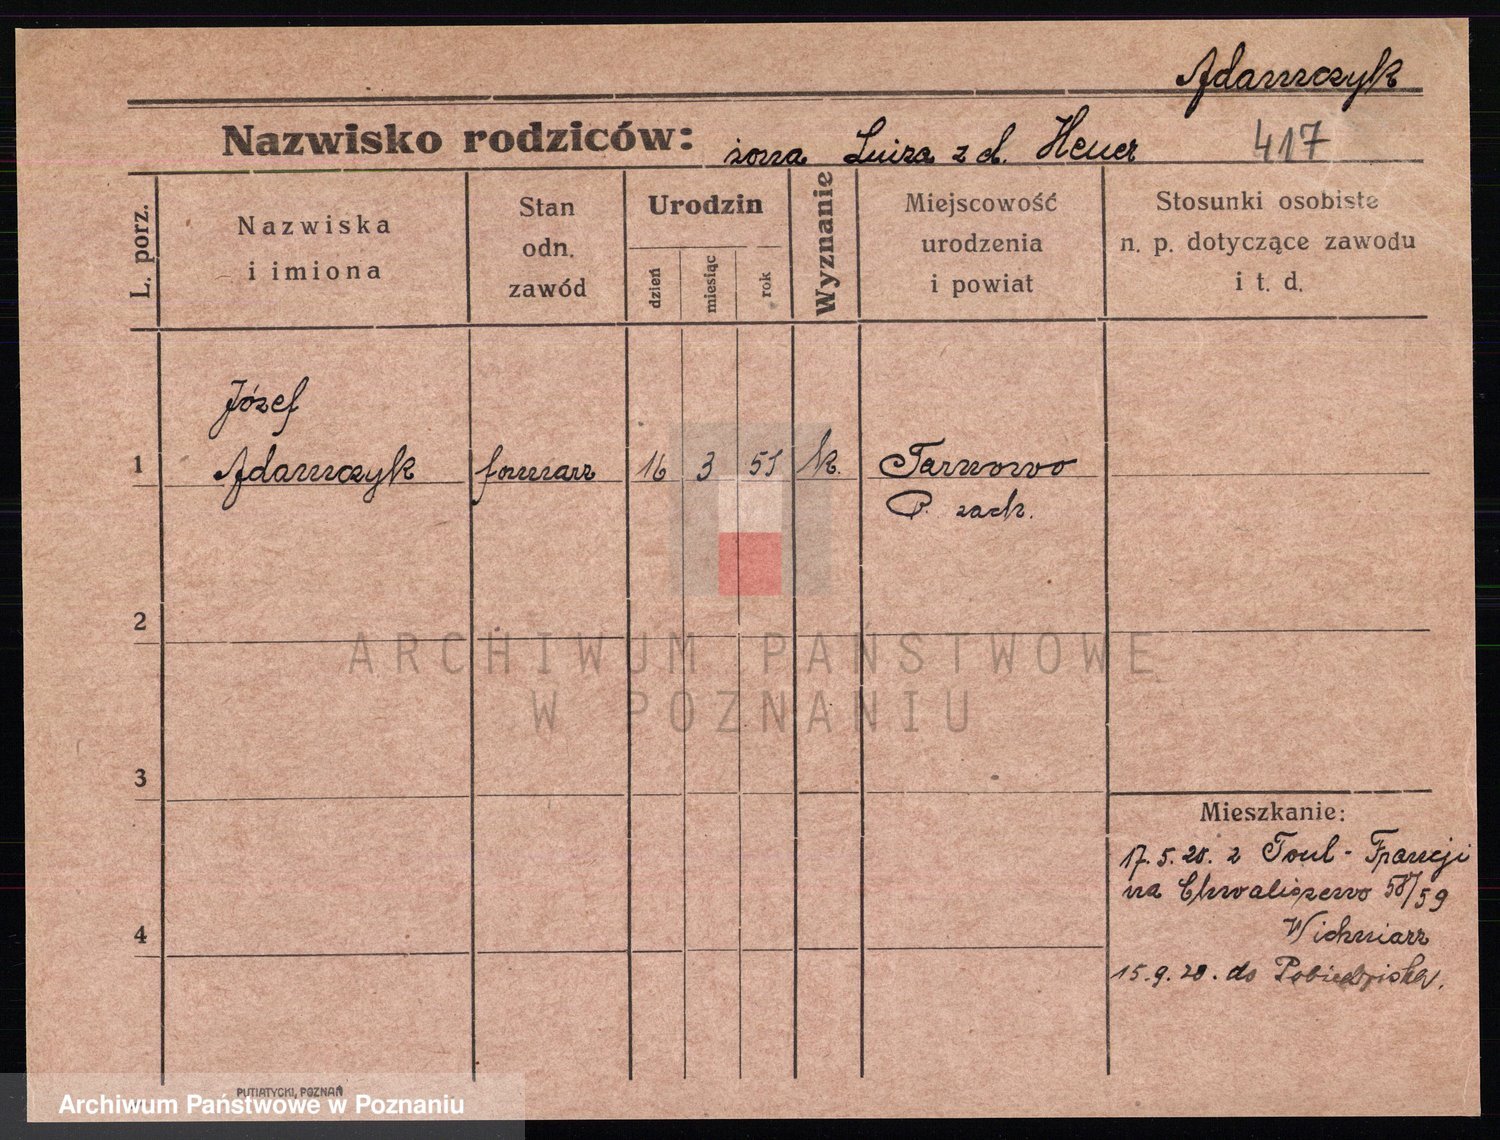 Adamczyk
Nazwisko rodziców: żona Luiza z d. Heuer 417
L. porz.
Nazwiska
i imiona
Stan
odn.
zawód
Urodzin
dzień
miesiąc
rok
Wyznanie
Miejscowość
urodzenia
i powiat
Stosunki osobiste
n. p. dotyczące zawodu
i t. d.
Józef
1 Adamczyk forniarz 16 3 51 k. Tarnowo
P. zach.
2
3
4
Mieszkanie:
17.5.20. z Toul - Francji
na Chwaliszewo 58/59
Wichniarz
15.9.20. do Pobiedziska.
PUTIATYCKI, POZNAŃ
ARCHIWUM PAŃSTWOWE
W POZNANIU
Archiwum Państwowe w Poznaniu